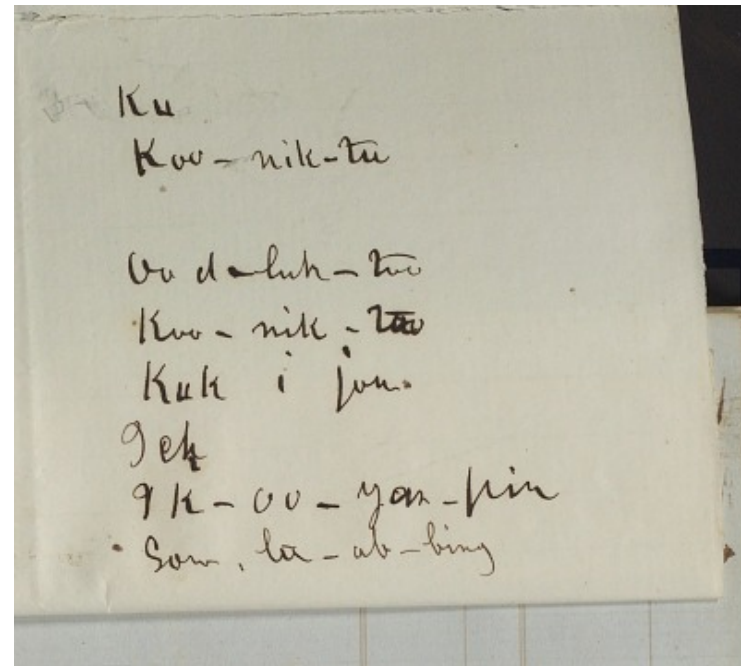 Ku
Koo-nik-tu
Oo d-luk-too
Koo-nik-too
Kuk i jou.
Ick
Ik-oo-yax-pin
Som, la-ab-bing